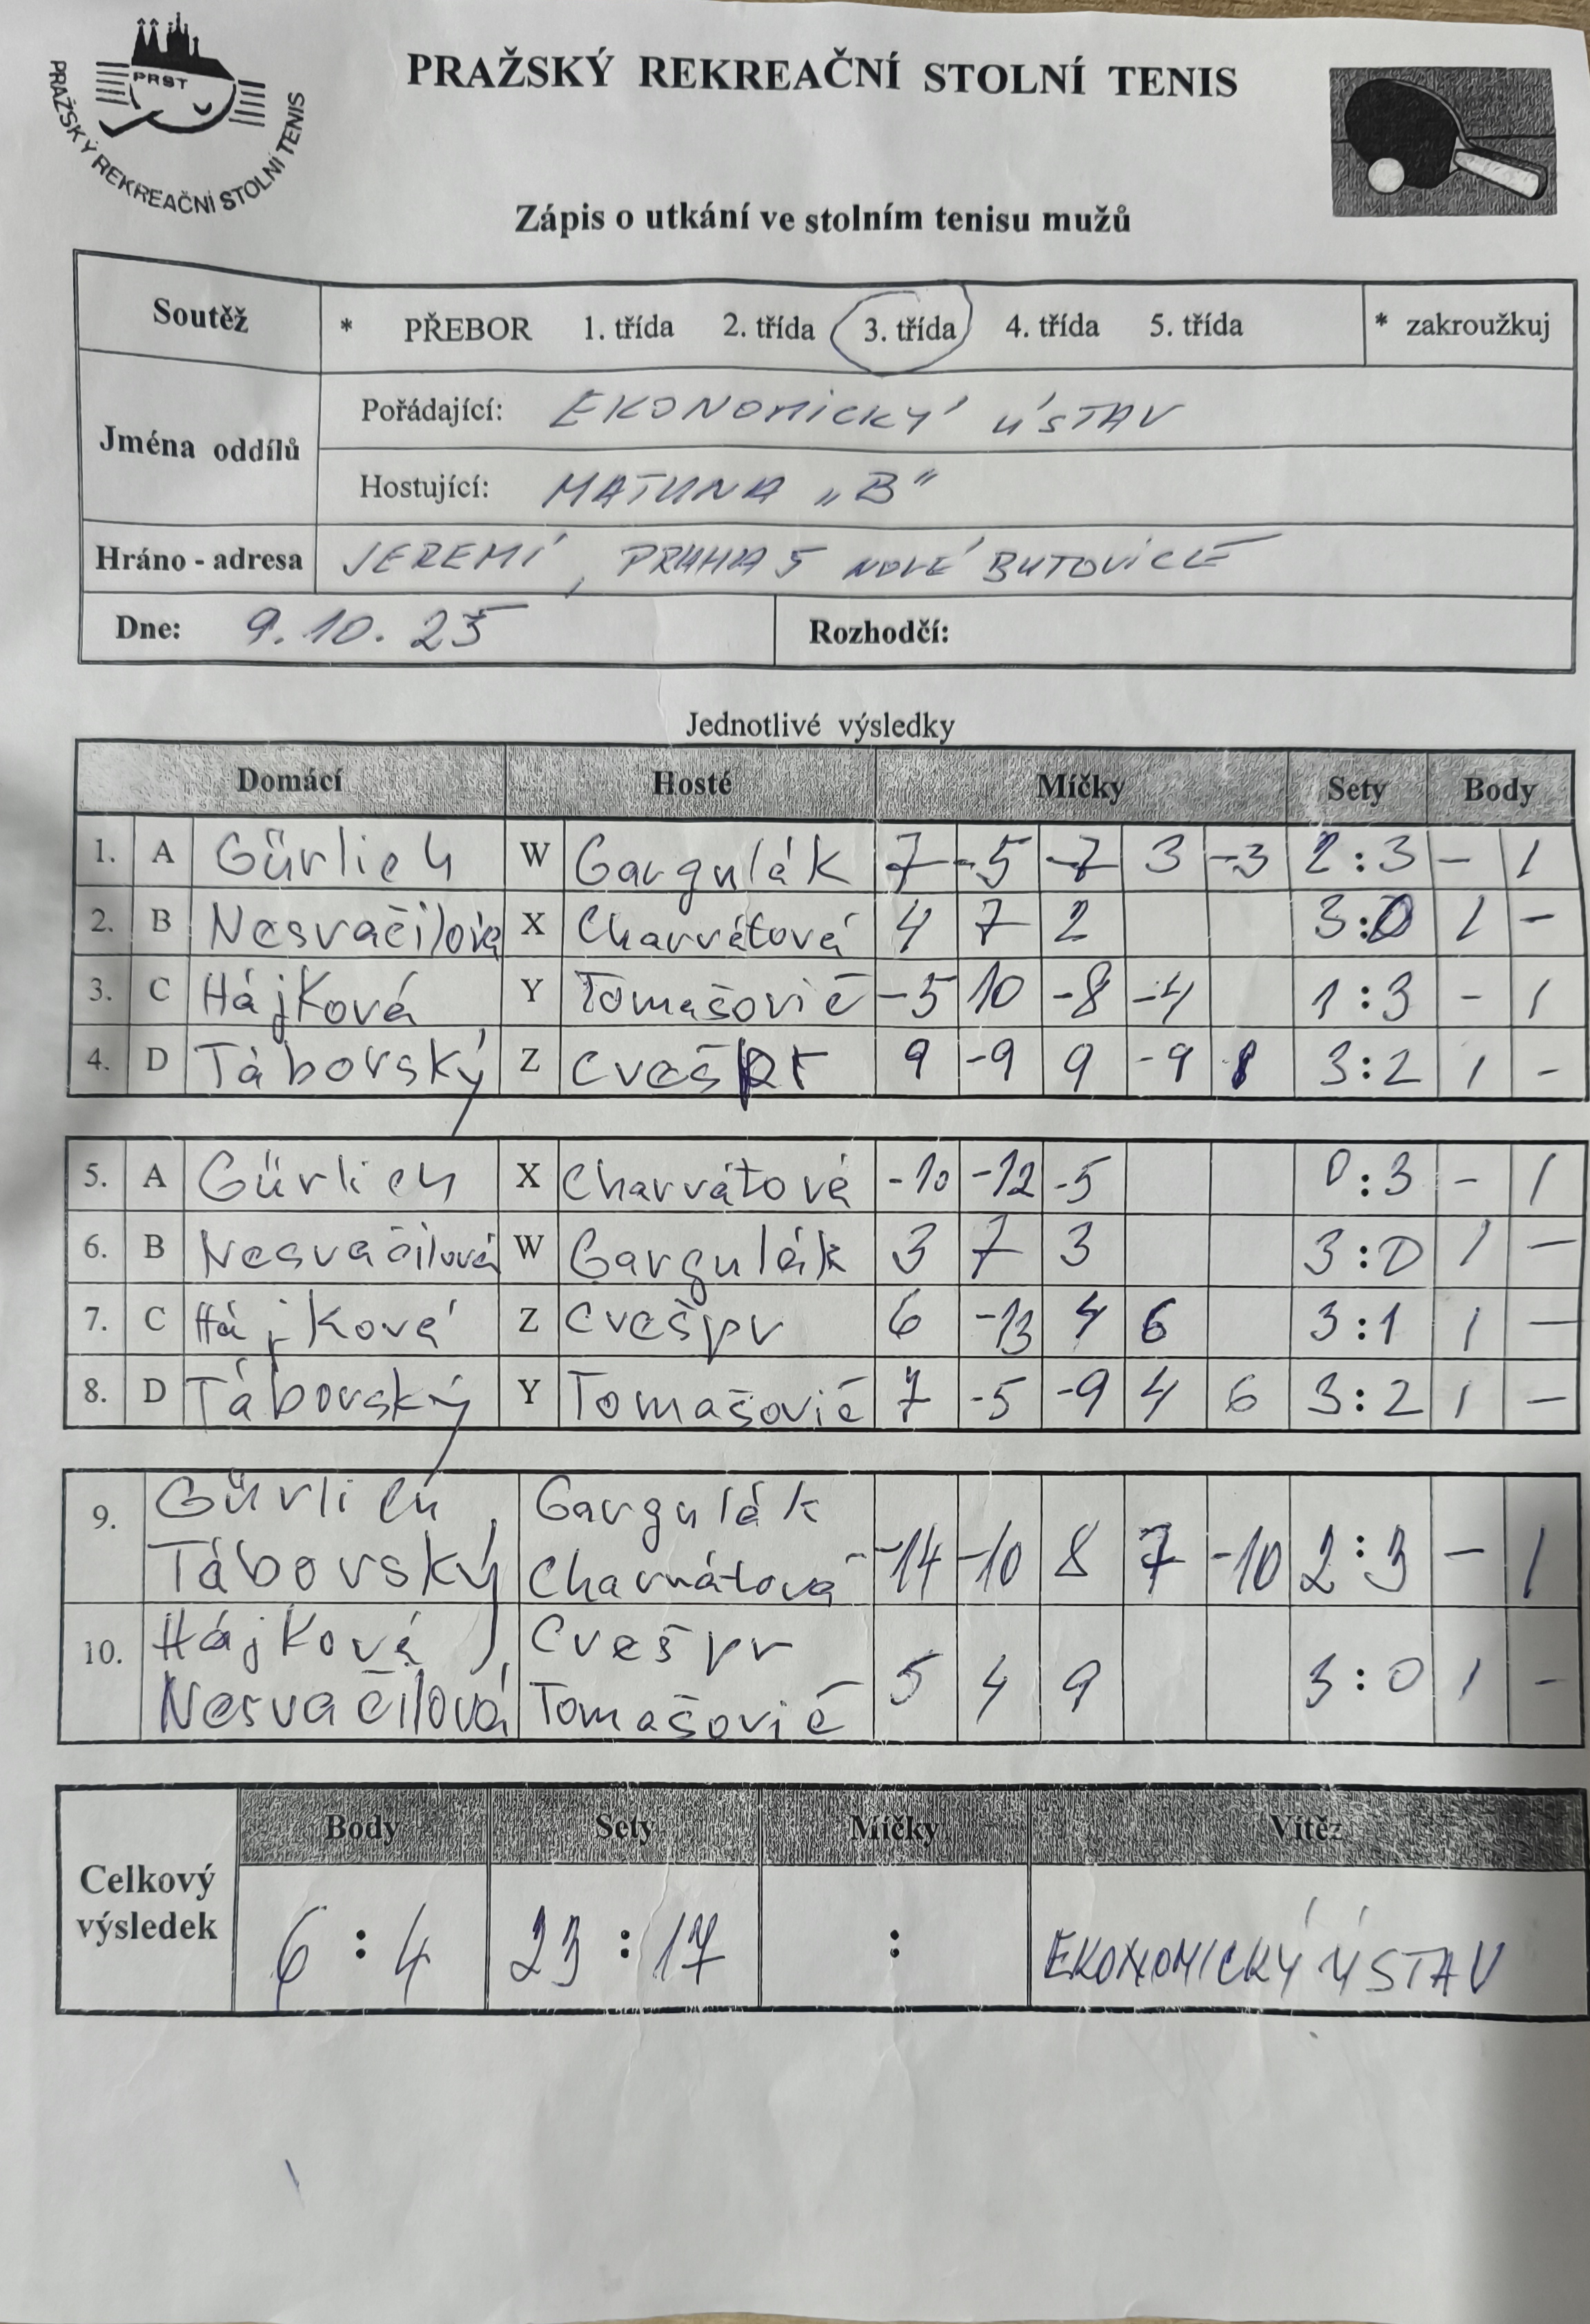 PRST
PRAŽSKÝ REKREAČNÍ STOLNÍ TENIS
PRAŽSKÝ REKREAČNÍ STOLNÍ TENIS
Zápis o utkání ve stolním tenisu mužů
Soutěž * PŘEBOR 1. třída 2. třída 3. třída 4. třída 5. třída * zakroužkuj
Jména oddílů
Pořádající: EKONOMICKÝ ÚSTAV
Hostující: MATUNA „B"
Hráno - adresa JEREMÍ, PRAHA 5 NOVÉ BUTOVICE
Dne: 9.10.25 Rozhodčí:
Jednotlivé výsledky
Domácí Hosté Míčky Sety Body
1. A Gürlich W Gargulák 7 -5 -7 3 -3 2:3 - 1
2. B Nesvačilová X Charvátová 4 7 2 3:0 1 -
3. C Hájková Y Tomašovič -5 10 -8 -4 1:3 - 1
4. D Táborský Z Cvešpr 9 -9 9 -9 8 3:2 1 -
5. A Gürlich X Charvátová -10 -12 -5 0:3 - 1
6. B Nesvačilová W Gargulák 3 7 3 3:0 1 -
7. C Hájková Z Cvešpr 6 -13 4 6 3:1 1 -
8. D Táborský Y Tomašovič 7 -5 -9 4 6 3:2 1 -
9. Gürlich Gargulák
Táborský Charvátová -14 -10 8 7 -10 2:3 - 1
10. Hájková Cvešpr
Nesvačilová Tomašovič 5 4 9 3:0 1 -
Celkový výsledek
Body Sety Míčky Vítěz
6:4 23:17 : EKONOMICKÝ ÚSTAV